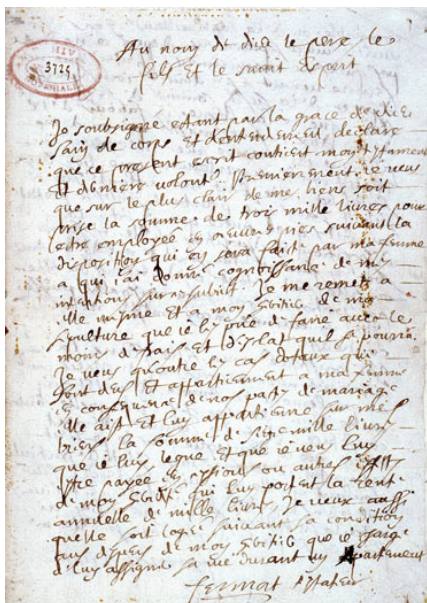 3725
Au nom de dieu le pere, le
fils et le saint esprit
Je soubsigné estant par la grace de dieu
sain de corps et d'entendement, declare
que ce present escrit contient mon testament
et derniere volonté. Premierement je veux
que sur le plus clair de mes biens soit
prise la somme de trois mille livres pour
estre employée en œuvres pies suivant la
disposition qui en sera faite par ma femme
a qui j'ai donné connoissance de mes
intentions sur ce subiet. Je me remets a
elle mesme et a mon heritier de ma
sepulture que je les prie de faire avec le
moins de frais et d'esclat qu'il se pourra
Je veux qu'outre les cas dotaux qui
sont deus et appartiennent a ma femme
en consequence de nos pactes de mariage
elle aist et luy appartienne sur mes
biens la somme de sept mille livres
que je luy legue et que je veux luy
estre payée en pensions ou autres
de mon heritier qui luy portent la rente
annuelle de mille livres. Je veux aussi
quelle soit logée suivant sa condition
aux despens de mon heritier que je charge
de luy assigner sa vie durant un apartement
fermat testateur